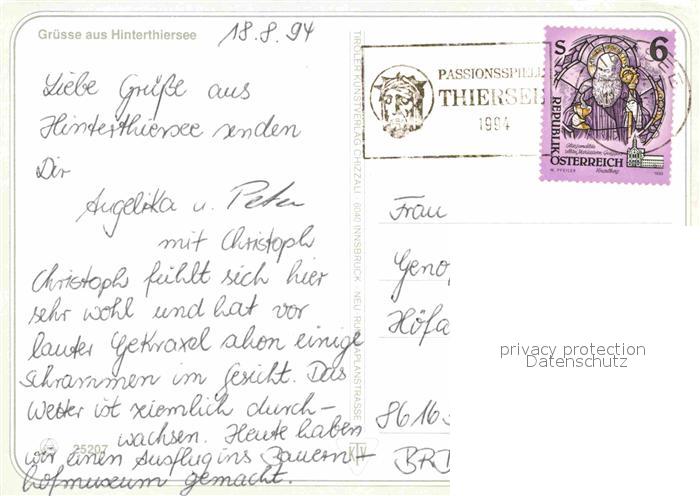 Grüsse aus Hinterthiersee
18.8.94
Liebe Grüße aus
Hinterthiersee senden
Dir
Angelika u. Peter
mit Christoph
Christoph fühlt sich hier
sehr wohl und hat vor
lauter Gekraxel ahon einige
schrammen im Gesicht. Das
Wetter ist ziemlich durch-
wachsen. Heute haben
wir einen Ausflug ins Bauern-
hofmuseum gemacht.
25207
TIROLER KUNSTVERLAG CHIZZALI · 6040 INNSBRUCK · NEU-RUM
KTV
PASSIONSSPIELE
THIERSEE
1994
S 6
REPUBLIK
ÖSTERREICH
W. PFEILER
1993
Frau
Geno
Höfa
8616
BRD
privacy protection
Datenschutz